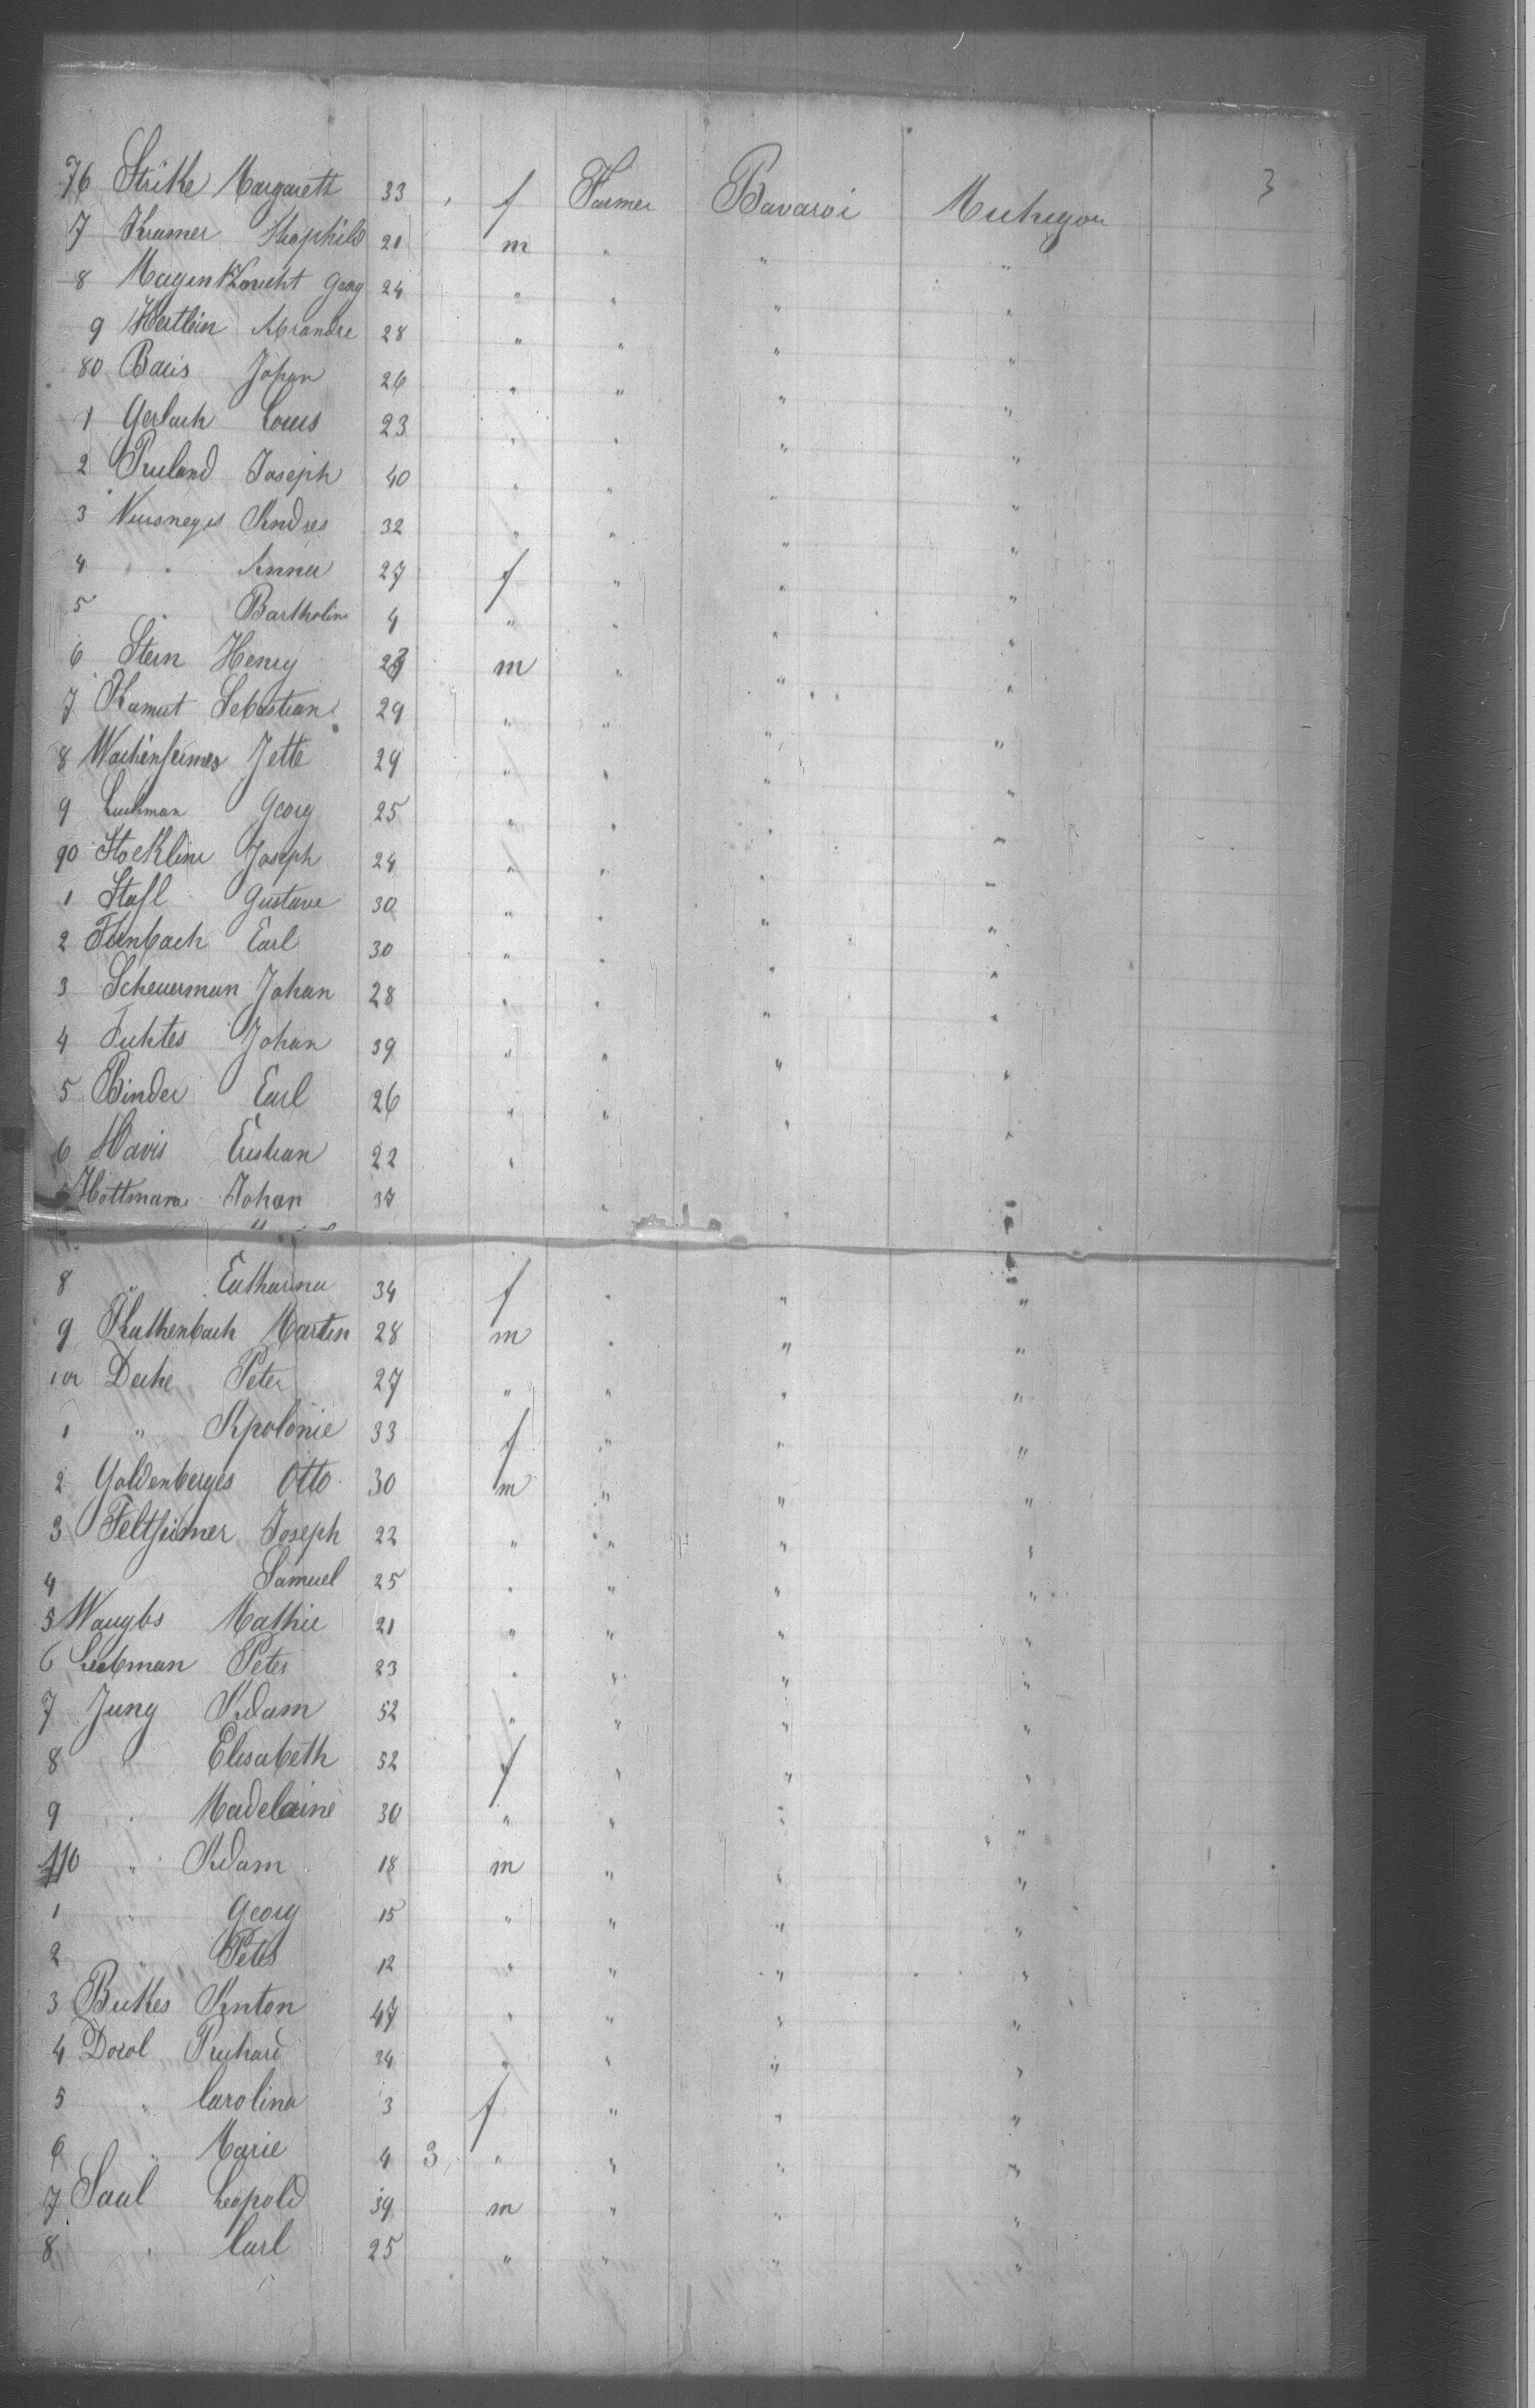 3
76 Strike Margarett 33 f Farmer Bavaroi Michigon
7 Kramer Theophild 21 m " " "
8 Georg 24 " " " "
9 Hertlein 28 " " " "
80 Baus Johan 26 " " " "
1 Gerlach Louis 23 " " " "
2 Ruland Joseph 40 " " " "
3 Andres 32 " " " "
4 " Anna 27 f " " "
5 " Bartholine 4 " " " "
6 Stern Henry 23 m " " "
7 Kamut Sebastian 29 " " " "
8 Wachenheimes Jette 29 " " " "
9 Luchman Georg 25 " " " "
90 Stocklin Joseph 24 " " " "
1 Stahl Gustave 30 " " " "
2 Carl 30 " " " "
3 Scheuerman Johan 28 " " " "
4 Fuchtes Johan 39 " " " "
5 Binder Carl 26 " " " "
6 Havis Cristian 22 " " "
7 Hottmann Johan 37 " " "
8 " Catharina 34 f " " "
9 Kathenbach Martin 28 m " " "
100 Deche Peter 27 " " " "
1 " Apolonie 33 f " " "
2 Goldenberges Otto 30 m " " "
3 Feltheimer Joseph 22 " " " "
4 Samuel 25 " " " "
5 Mathie 21 " " " "
6 Liebman Peter 23 " " " "
7 Jung Adam 52 " " " "
8 " Elisabeth 52 f " " "
9 " Madelaine 30 " " " "
110 " Adam 18 m " " "
1 " Georg 15 " " " "
2 " Peter 12 " " " "
3 Anton 47 " " " "
4 Dorol Richard 34 " " " "
5 " Carolina 3 f " " "
6 " Marie 4 3 " " " "
7 Saul Leopold 39 m " " "
8 " Carl 25 " " " "